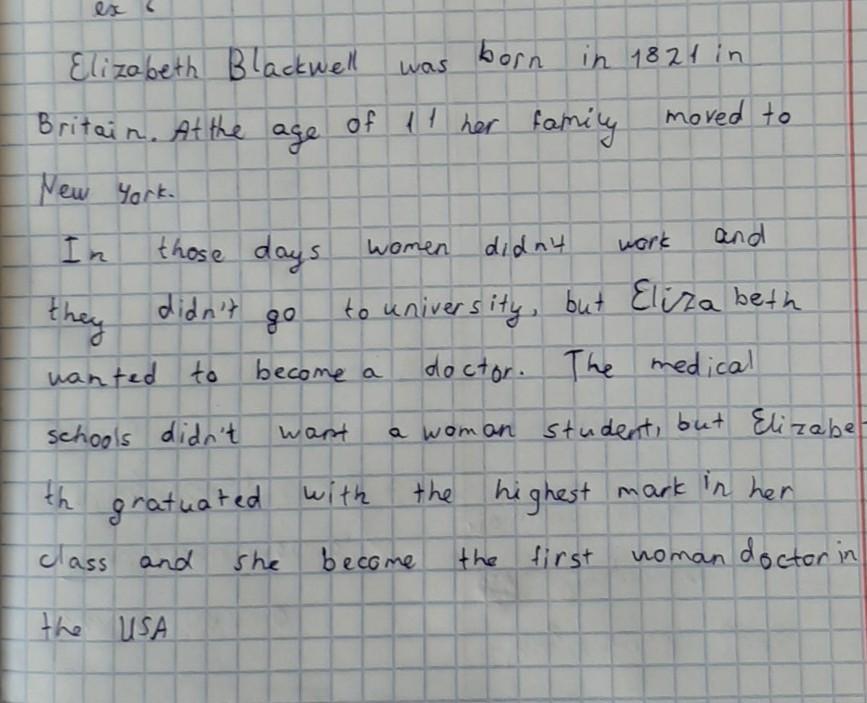 ex 6
Elizabeth Blackwell was born in 1821 in
Britain. At the age of 11 her family moved to
New York.
In those days women didn't work and
they didn't go to university, but Elizabeth
wanted to become a doctor. The medical
schools didn't want a woman student, but Elizabe
th gratuated with the highest mark in her
class and she become the first woman doctor in
the USA